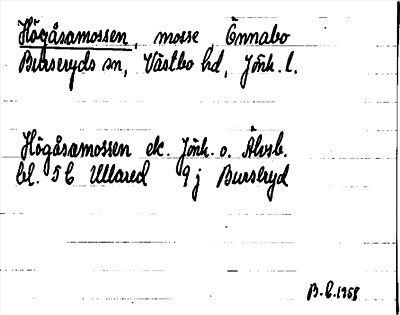 Högåsamossen, mosse, Önnabo
Burseryds sn, Västbo hd, Jönk. l.
Högåsamossen ek. Jönk. o. Älvsb.
bl. 5C Ullared 9j Burseryd
B. C. 1968